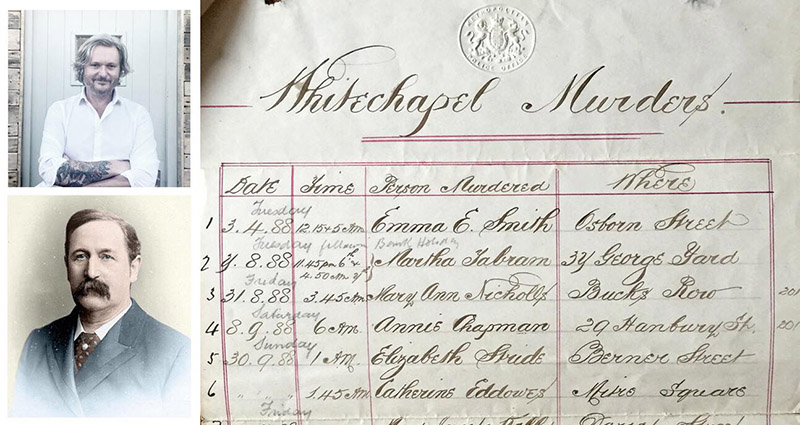 METROPOLITAN
POLICE OFFICE
Whitechapel Murders.
Date Time Person Murdered Where
Tuesday
1 3.4.88 12.15+5 AM Emma E. Smith Osborn Street
Tuesday following Bank Holiday
2 7.8.88 11.45 pm 6th 4.50 AM 7th Martha Tabram 37 George Yard
Friday
3 31.8.88 3.45 AM Mary Ann Nicholls Bucks Row 201
Saturday
4 8.9.88 6 AM Annie Chapman 29 Hanbury St. 201
Sunday
5 30.9.88 1 AM Elizabeth Stride Berner Street
6 " " " 1.45 AM Catherine Eddowes Mitre Square
Friday